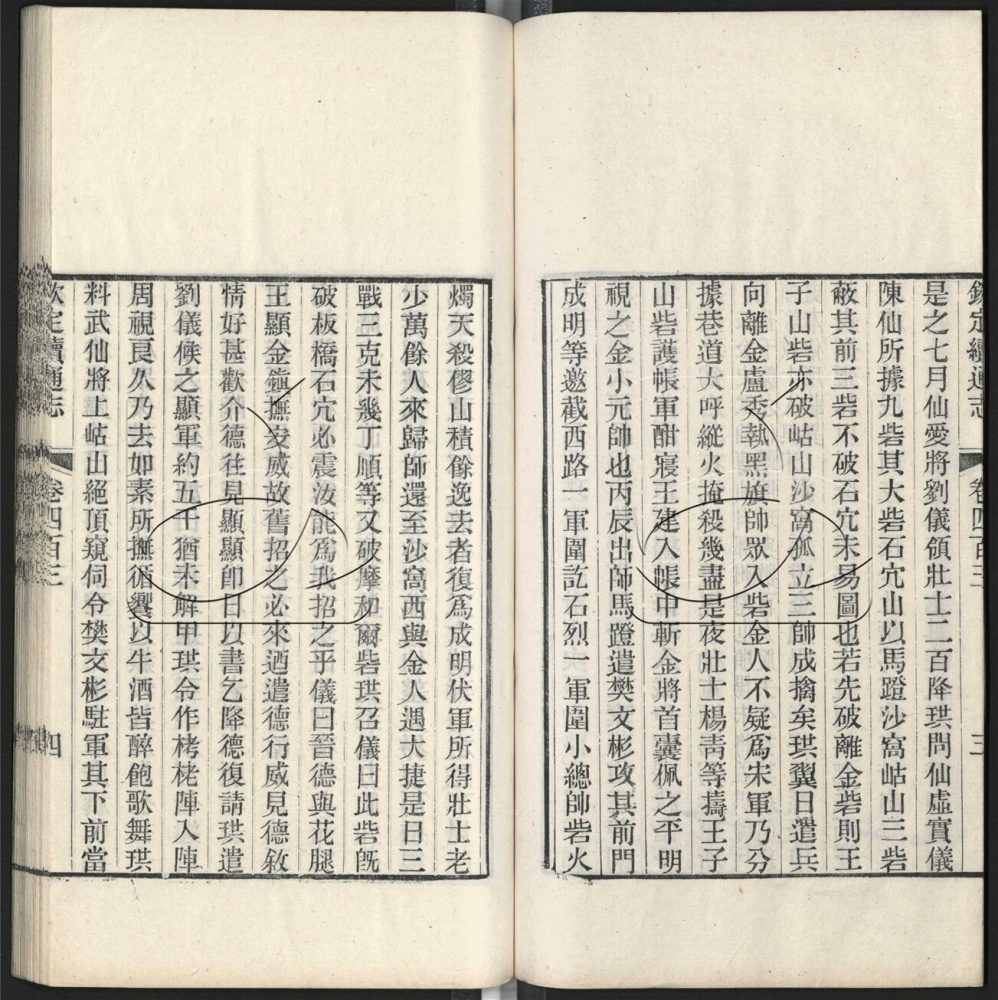 欽定續通志 卷四百三 三
是之七月仙愛將劉儀領壯士二百降珙問仙虛實儀
陳仙所據九砦其大砦石穴山以馬蹬沙窩岵山三砦
蔽其前三砦不破石穴未易圖也若先破離金砦則王
子山砦亦破岵山沙窩孤立三帥成擒矣珙翼日遣兵
向離金盧秀執黑旗帥眾入砦金人不疑爲宋軍乃分
據巷道大呼縱火掩殺幾盡是夜壯士楊靑等擣王子
山砦護帳軍酣寢王建入帳中斬金將首囊佩之平明
視之金小元帥也丙辰出師馬蹬遣樊文彬攻其前門
成明等邀截西路一軍圍訖石烈一軍圍小總帥砦火
燭天殺僇山積餘逸去者復爲成明伏軍所得壯士老
少萬餘人來歸師還至沙窩西與金人遇大捷是日三
戰三克未幾丁順等又破摩和爾砦珙召儀曰此砦旣
破板橋石穴必震汝能爲我招之乎儀曰晉德與花腿
王顯金鎮撫安威故舊招之必來迺遣德行威見德敘
情好甚歡介德往見顯顯卽日以書乞降德復請珙遣
劉儀候之顯軍約五千猶未解甲珙令作栲栳陣入陣
周視良久乃去如素所撫循饗以牛酒皆醉飽歌舞珙
料武仙將上岵山絕頂窺伺令樊文彬駐軍其下前當
欽定續通志 卷四百三 四